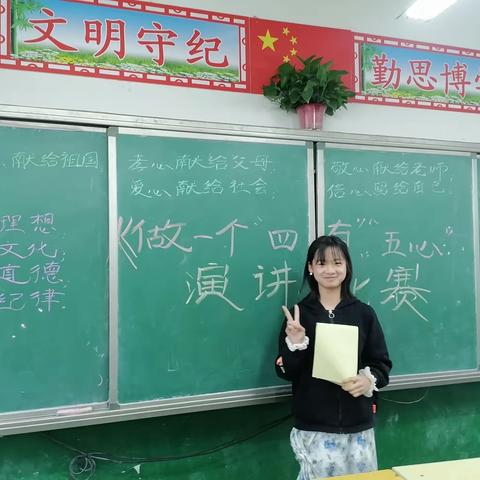 文明守纪
勤思博
献给祖国
孝心献给父母
敬心献给老师
爱心献给社会
信心留给自己
理想
文化
道德
纪律
《做一个"四有""五心"
演讲比赛